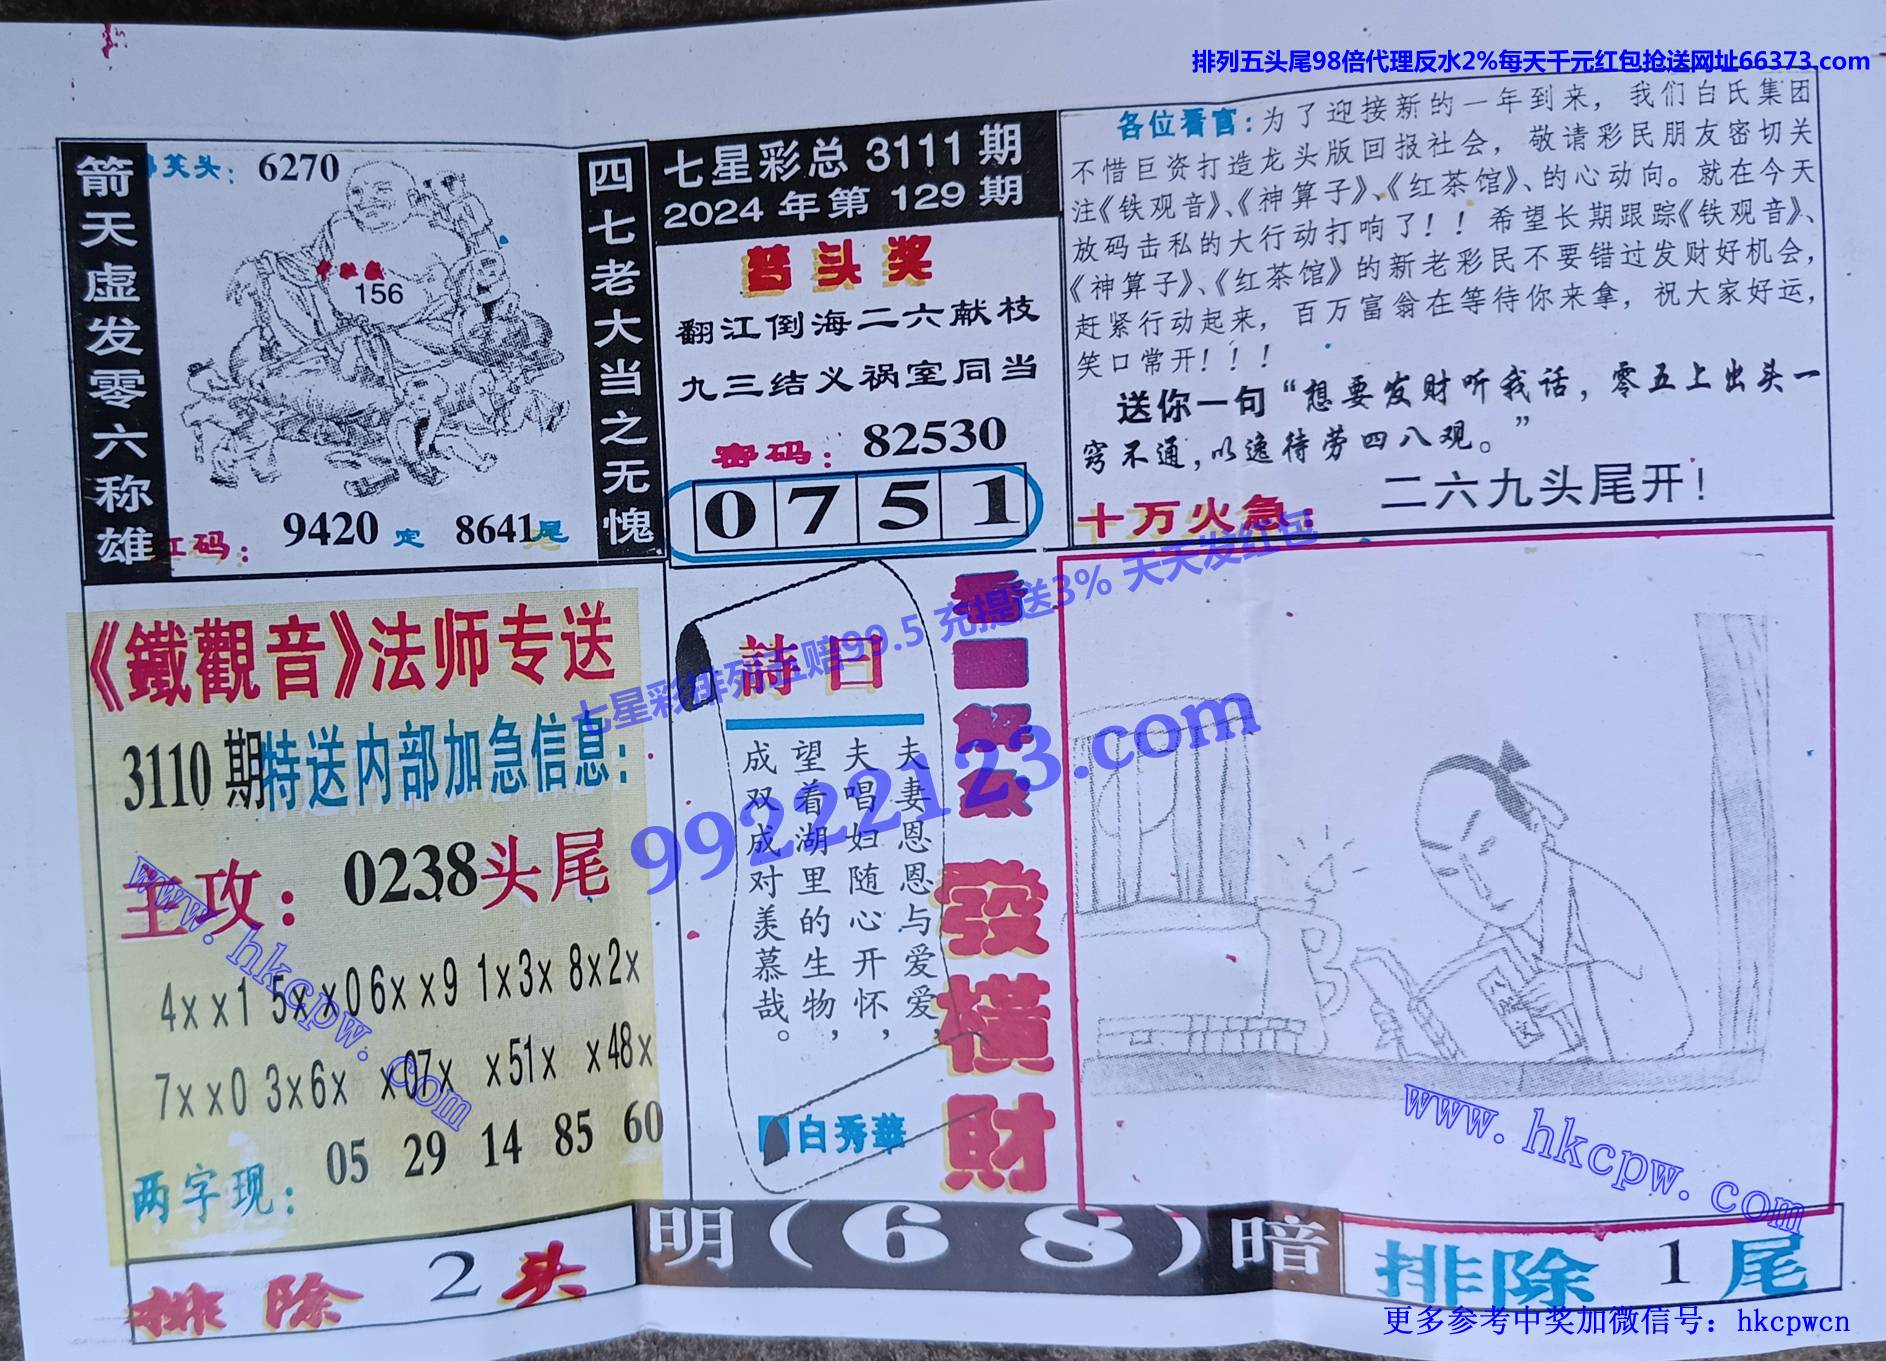 排列五头尾98倍代理反水2%每天千元红包抢送网址66373.com
箭天虚发零六称雄
笑头：6270
156
红码：9420 定 8641尾
四七老大当之无愧
七星彩总 3111 期
2024 年第 129 期
头奖
翻江倒海二六献枝
九三结义祸室同当
密码：82530
0 7 5 1
各位看官：为了迎接新的一年到来，我们白氏集团
不惜巨资打造龙头版回报社会，敬请彩民朋友密切关
注《铁观音》、《神算子》、《红茶馆》、的心动向。就在今天
放码击私的大行动打响了！！希望长期跟踪《铁观音》、
《神算子》、《红茶馆》的新老彩民不要错过发财好机会，
赶紧行动起来，百万富翁在等待你来拿，祝大家好运，
笑口常开！！！
送你一句“想要发财听我话，零五上出头一
窍不通，以逸待劳四八观。”
十万火急：
二六九头尾开！
《鐵觀音》法师专送
3110 期特送内部加急信息：
主攻：0238头尾
4××1 5××0 6××9 1×3× 8×2×
7××0 3×6× ×07× ×51× ×48×
两字现：05 29 14 85 60
排除 2 头
詩曰
夫妻恩恩与爱爱，
夫唱妇随心开怀，
望着湖里的生物，
成双成对羡慕哉。
白秀華
發橫財
七星彩排列五赔99.5 充提送3% 天天发红包
99222123.com
www.hkcpw.com
www.hkcpw.com
明（6 8）暗
排除 1 尾
更多参考中奖加微信号：hkcpwcn